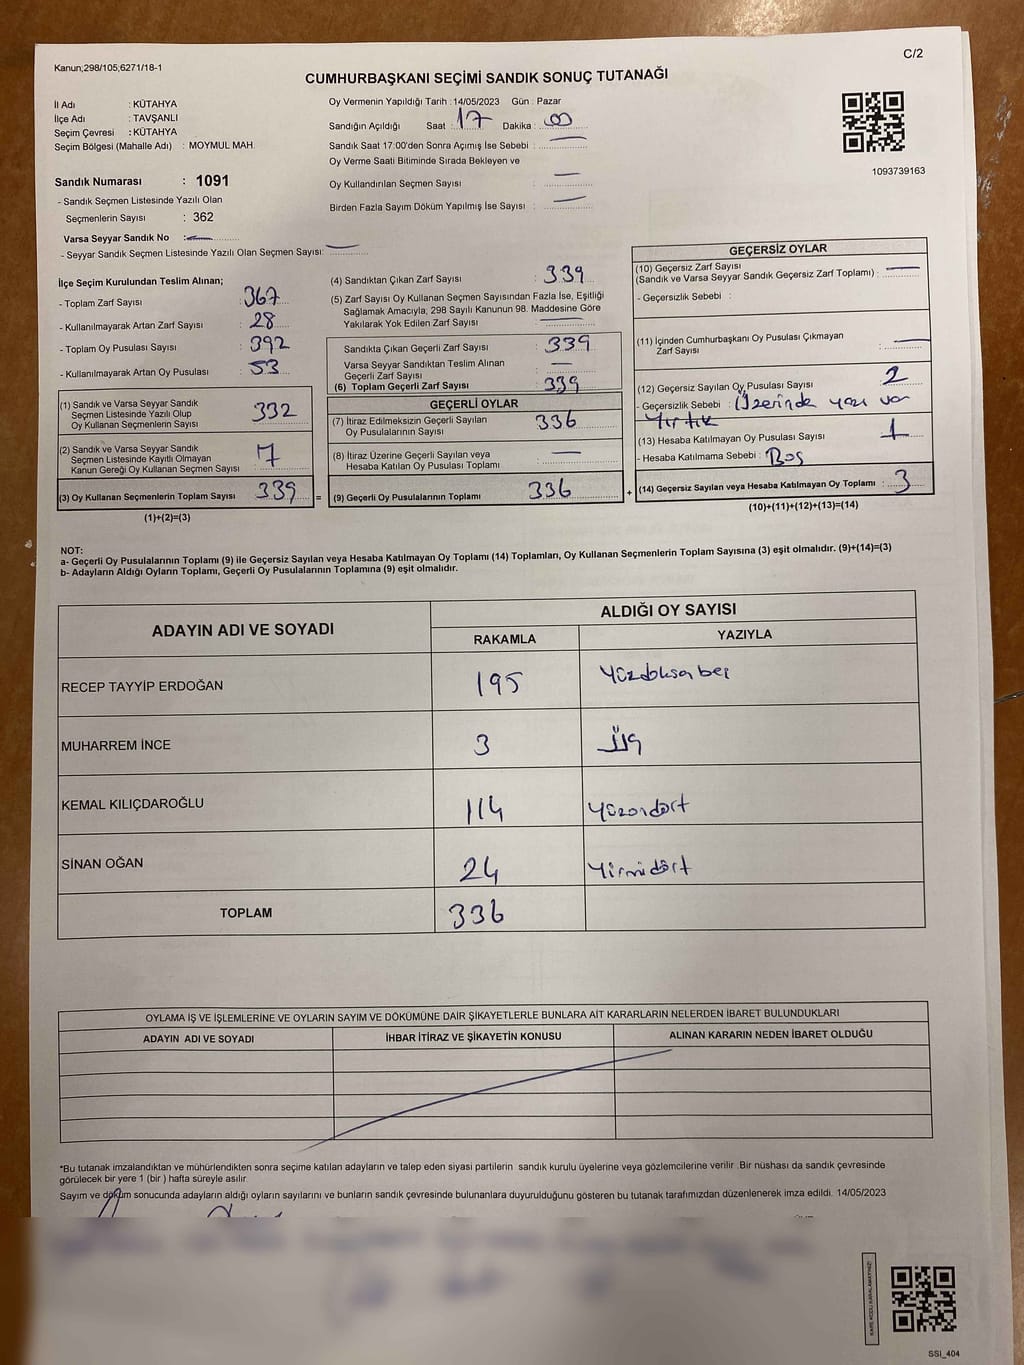 Kanun;298/105;6271/18-1
C/2
CUMHURBAŞKANI SEÇİMİ SANDIK SONUÇ TUTANAĞI
İl Adı : KÜTAHYA
İlçe Adı : TAVŞANLI
Seçim Çevresi : KÜTAHYA
Seçim Bölgesi (Mahalle Adı) : MOYMUL MAH.
Oy Vermenin Yapıldığı Tarih : 14/05/2023 Gün : Pazar
Sandığın Açıldığı Saat : 17 Dakika : 00
Sandık Saat 17:00'den Sonra Açımış İse Sebebi :
Oy Verme Saati Bitiminde Sırada Bekleyen ve
Oy Kullandırılan Seçmen Sayısı :
Birden Fazla Sayım Döküm Yapılmış İse Sayısı :
1093739163
Sandık Numarası : 1091
- Sandık Seçmen Listesinde Yazılı Olan
Seçmenlerin Sayısı : 362
Varsa Seyyar Sandık No :
- Seyyar Sandık Seçmen Listesinde Yazılı Olan Seçmen Sayısı:
İlçe Seçim Kurulundan Teslim Alınan;
- Toplam Zarf Sayısı : 367
- Kullanılmayarak Artan Zarf Sayısı : 28
- Toplam Oy Pusulası Sayısı : 392
- Kullanılmayarak Artan Oy Pusulası : 53
(1) Sandık ve Varsa Seyyar Sandık
Seçmen Listesinde Yazılı Olup
Oy Kullanan Seçmenlerin Sayısı : 332
(2) Sandık ve Varsa Seyyar Sandık
Seçmen Listesinde Kayıtlı Olmayan
Kanun Gereği Oy Kullanan Seçmen Sayısı : 7
(3) Oy Kullanan Seçmenlerin Toplam Sayısı : 339 =
(1)+(2)=(3)
(4) Sandıktan Çıkan Zarf Sayısı : 339
(5) Zarf Sayısı Oy Kullanan Seçmen Sayısından Fazla İse, Eşitliği
Sağlamak Amacıyla; 298 Sayılı Kanunun 98. Maddesine Göre
Yakılarak Yok Edilen Zarf Sayısı :
Sandıkta Çıkan Geçerli Zarf Sayısı : 339
Varsa Seyyar Sandıktan Teslim Alınan
Geçerli Zarf Sayısı :
(6) Toplam Geçerli Zarf Sayısı : 339
GEÇERLİ OYLAR
(7) İtiraz Edilmeksizin Geçerli Sayılan
Oy Pusulalarının Sayısı : 336
(8) İtiraz Üzerine Geçerli Sayılan veya
Hesaba Katılan Oy Pusulası Toplamı :
(9) Geçerli Oy Pusulalarının Toplamı : 336 +
GEÇERSİZ OYLAR
(10) Geçersiz Zarf Sayısı
(Sandık ve Varsa Seyyar Sandık Geçersiz Zarf Toplamı) :
- Geçersizlik Sebebi :
(11) İçinden Cumhurbaşkanı Oy Pusulası Çıkmayan
Zarf Sayısı :
(12) Geçersiz Sayılan Oy Pusulası Sayısı : 2
- Geçersizlik Sebebi : Üzerinde yazı var
Yırtık
(13) Hesaba Katılmayan Oy Pusulası Sayısı : 1
- Hesaba Katılmama Sebebi : Boş
(14) Geçersiz Sayılan veya Hesaba Katılmayan Oy Toplamı : 3
(10)+(11)+(12)+(13)=(14)
NOT:
a- Geçerli Oy Pusulalarının Toplamı (9) ile Geçersiz Sayılan veya Hesaba Katılmayan Oy Toplamı (14) Toplamları, Oy Kullanan Seçmenlerin Toplam Sayısına (3) eşit olmalıdır. (9)+(14)=(3)
b- Adayların Aldığı Oyların Toplamı, Geçerli Oy Pusulalarının Toplamına (9) eşit olmalıdır.
ADAYIN ADI VE SOYADI
ALDIĞI OY SAYISI
RAKAMLA YAZIYLA
RECEP TAYYİP ERDOĞAN 195 Yüzdoksabeş
MUHARREM İNCE 3 üç
KEMAL KILIÇDAROĞLU 114 Yüzondört
SİNAN OĞAN 24 Yirmidört
TOPLAM 336
OYLAMA İŞ VE İŞLEMLERİNE VE OYLARIN SAYIM VE DÖKÜMÜNE DAİR ŞİKAYETLERLE BUNLARA AİT KARARLARIN NELERDEN İBARET BULUNDUKLARI
ADAYIN ADI VE SOYADI İHBAR İTİRAZ VE ŞİKAYETİN KONUSU ALINAN KARARIN NEDEN İBARET OLDUĞU
*Bu tutanak imzalandıktan ve mühürlendikten sonra seçime katılan adayların ve talep eden siyasi partilerin sandık kurulu üyelerine veya gözlemcilerine verilir .Bir nüshası da sandık çevresinde
görülecek bir yere 1 (bir ) hafta süreyle asılır
Sayım ve döküm sonucunda adayların aldığı oyların sayılarını ve bunların sandık çevresinde bulunanlara duyurulduğunu gösteren bu tutanak tarafımızdan düzenlenerek imza edildi. 14/05/2023
KARE KODU KARALAMAYINIZ!
SSİ_404